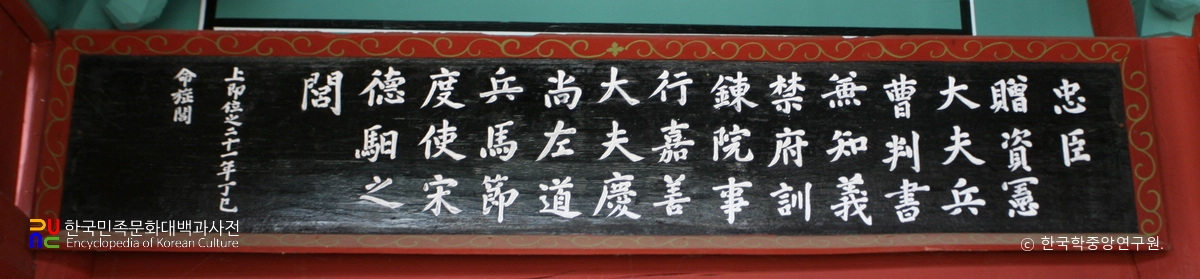 忠臣
贈資憲
大夫兵
曹判書
兼知義
禁府訓
鍊院事
行嘉善
大夫慶
尚左道
兵馬節
度使宋
德馹之
閭
上即位之二十一年丁巳
命旌閭
한국민족문화대백과사전
Encyclopedia of Korean Culture
© 한국학중앙연구원.